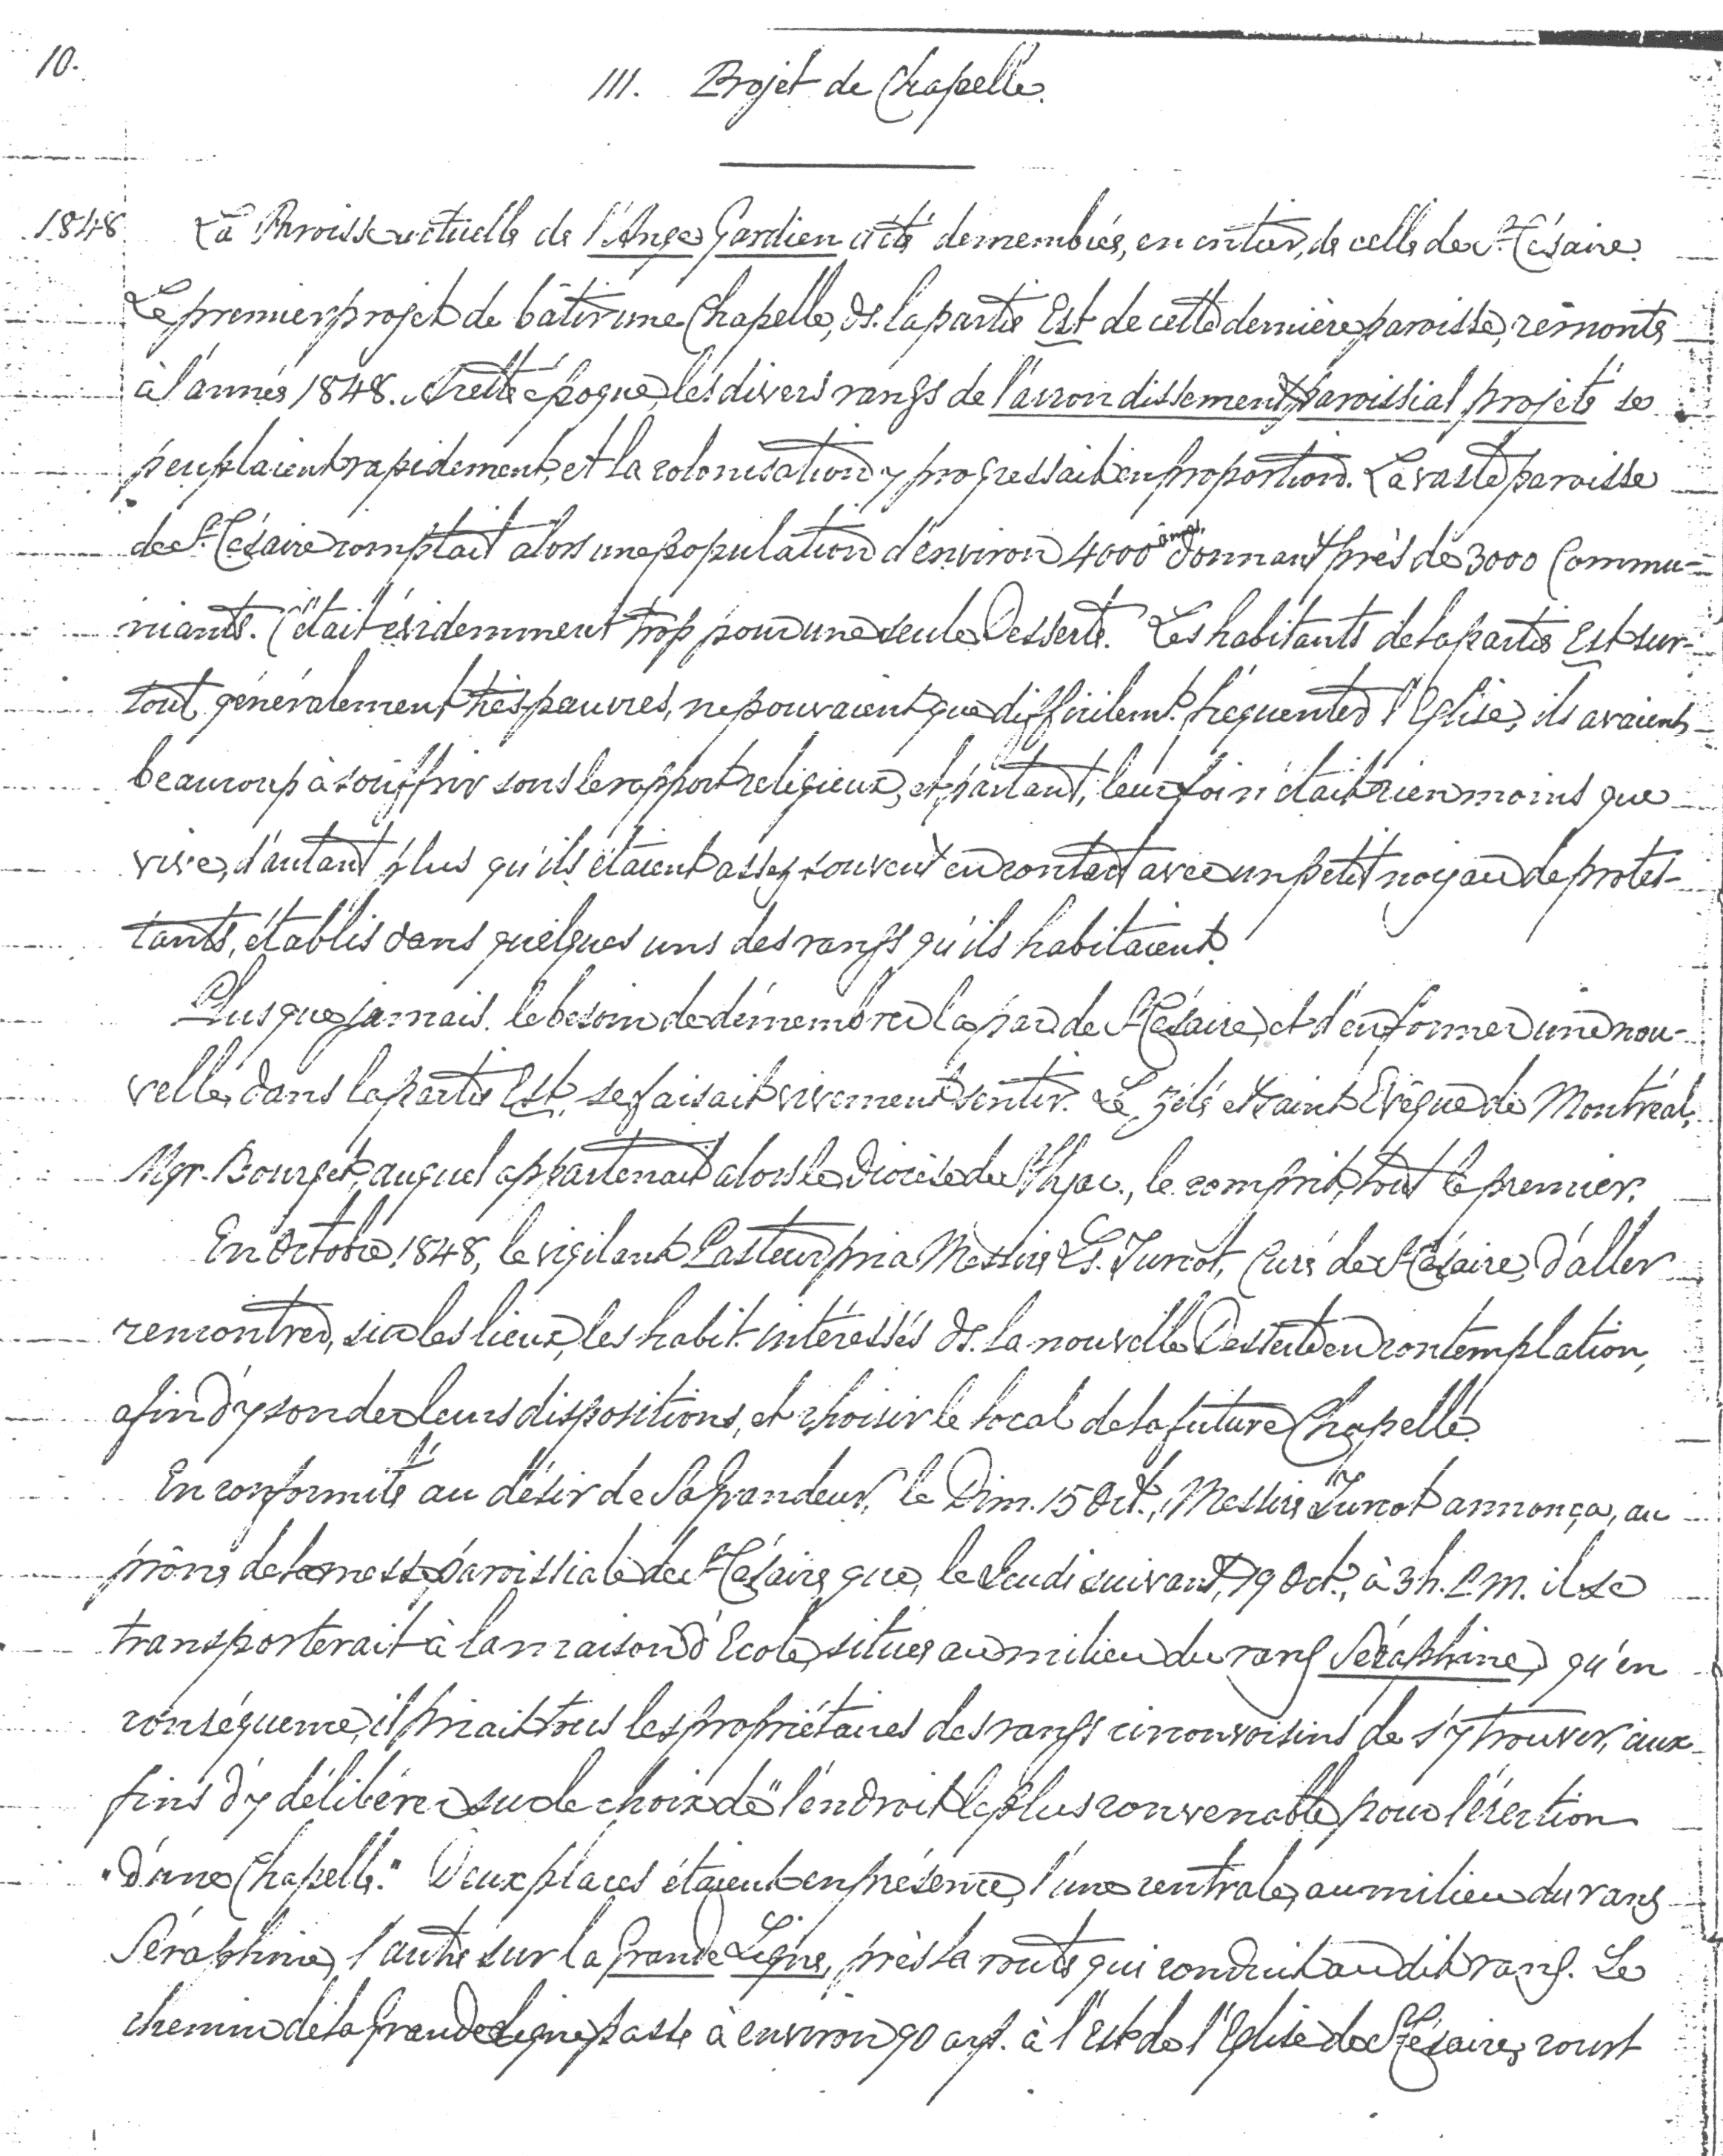 10.
III. Projet de Chapelle.
1848 La Paroisse actuelle de l'Ange Gardien a été demembrée, en entier, de celle de St Césaire.
Le premier projet de bâtir une Chapelle, ds. la partie Est de cette dernière paroisse, remonte
à l'année 1848. A cette époque, les divers rangs de l'arrondissement paroissial projeté se
peuplaient rapidement, et la colonisation y progressait en proportion. La vaste paroisse
de St Césaire comptait alors une population d'environ 4000 âmes, donnant près de 3000 Commu-
niants. C'était évidemment trop pour une seule Desserte. Les habitants de la partie Est sur-
tout, généralement très pauvres, ne pouvaient que difficilemt. fréquenter l'Eglise, ils avaient
beaucoup à souffrir sous le rapport religieux, et, partant, leur foi n'était rien moins que
vive, d'autant plus qu'ils étaient assez souvent en contact avec un petit noyau de protes-
tants, établis dans quelques uns des rangs qu'ils habitaient.
Plus que jamais, le besoin de démembrer la par de St Césaire, et d'en former une nou-
velle, dans la partie Est, se faisait vivement sentir. Le zélé et saint Evêque de Montréal,
Mgr. Bourget, auquel appartenait alors le Diocèse de St Hyac., le comprit, tout le premier.
En Octobre 1848, le vigilant Pasteur pria Messire Ls. Turcot, Curé de St Césaire, d'aller
rencontrer, sur les lieux, les habit. intéressés ds. la nouvelle Desserte en contemplation,
afin d'y sonder leurs dispositions, et choisir le local de la future Chapelle.
En conformité au désir de Sa Grandeur, le Dim. 15 Oct., Messire Turcot annonça, au
prône de la messe paroissiale de St Césaire, que, le Jeudi suivant, 19 Oct., à 3 h. P.M. il se
transporterait à la maison d'Ecole, située au milieu du rang Séraphine, qu'en
conséquence, il priait tous les propriétaires des rangs circonvoisins de s'y trouver, aux
fins d'y délibérer sur le choix de "l'endroit le plus convenable pour l'érection
"d'une Chapelle." Deux places étaient en présence, l'une centrale, au milieu du rang
Séraphine, l'autre sur la Grande Ligne, près la route qui conduit au dit rang. Le
chemin de la Grande Ligne passe à environ 90 arp. à l'Est de l'Eglise de St Césaire, court